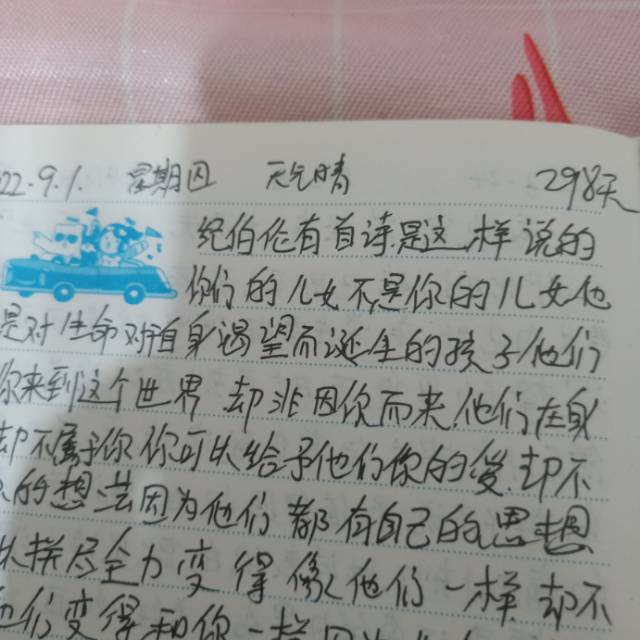 22.9.1. 星期四 天气晴 298天
纪伯伦有首诗是这样说的
你们的儿女不是你的儿女他
是对生命对自身渴望而诞生的孩子他们
你来到这个世界却非因你而来他们在身
却不属于你你可以给予他们你的爱却不
的想法因为他们都有自己的思想
以拼尽全力变得像他们一样却不
他们变得和你一样因为